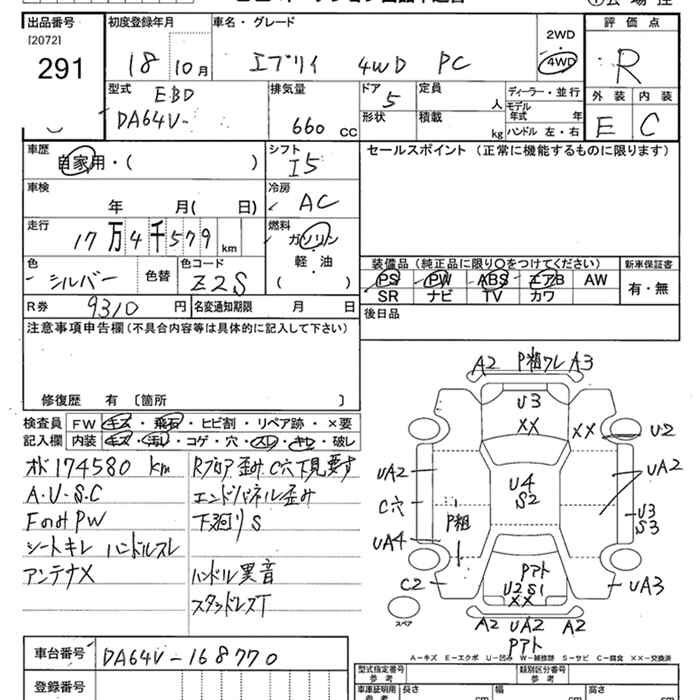 出品番号 初度登録年月 車名・グレード 評価点
[2072]
291
18 10月 エブリイ 4WD PC
2WD
4WD
R
型式 EBD 排気量 ドア 定員 ディーラー・並行 外装 内装
DA64V- 660 CC 5 人 モデル年式 年
形状 積載 kg ハンドル 左・右 E C
車歴 自家用・( ) シフト I5 セールスポイント (正常に機能するものに限ります)
車検 年 月( 日) 冷房 AC
走行 17万4千579 km 燃料 ガソリン
軽・油
( )
色 シルバー 色替 色コード Z2S
装備品 (純正品に限り○をつけてください) 新車保証書
PS PW ABS エアB AW 有・無
SR ナビ TV カワ
R券 9310 円 名変通知期限 月 日 後日品
注意事項申告欄 (不具合内容等は具体的に記入して下さい)
修復歴 有 [箇所 ]
検査員 FW キズ・飛石・ヒビ割・リペア跡・×要
記入欄 内装 キズ・汚れ・コゲ・穴・スレ・キレ・破レ
オド174580 km
A・U・S・C
FのみPW
シートキレ ハンドルスレ
アンテナX
Rフロア歪み C穴下見要す
エンドパネル歪み
下廻りS
ハンドル異音
スタッドレスT
A2 P粗ワレ A3
U3
XX XX U2
UA2 U4 UA2
S2
C穴 P粗 U3
S3
UA4
Pアト
C2 U2 S1 UA3
XX
スペア
A2 UA2 A2
Pアト
A-キズ E-エクボ U-凹み W-補修跡 S-サビ C-腐食 ××-交換済
車台番号 DA64V-168770
型式指定番号 参考 類別区分番号 参考
登録番号 車庫証明用 参考 長さ cm 幅 cm 高さ cm